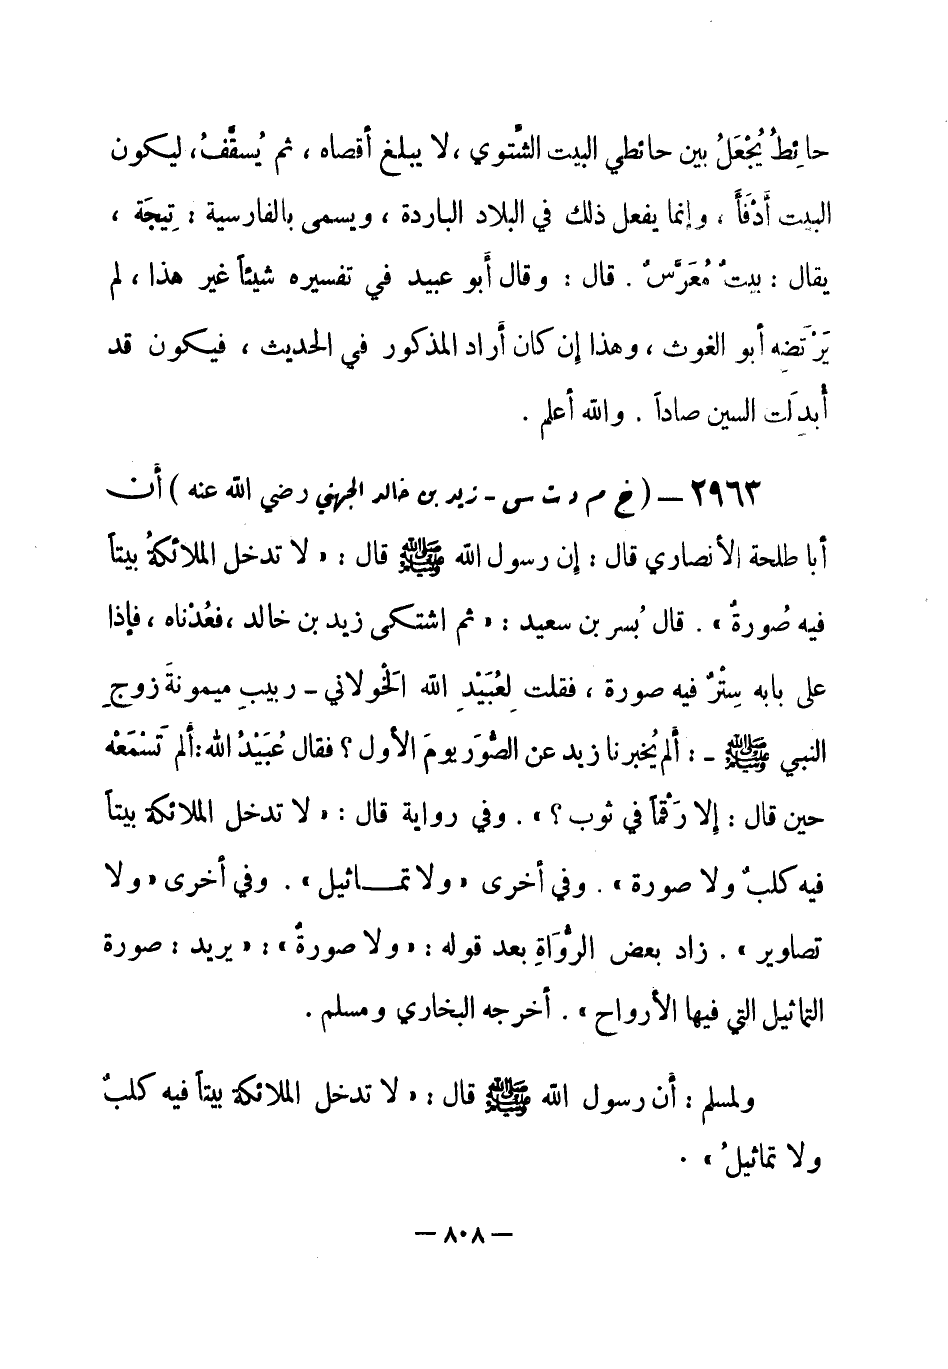 حائِطٌ يُجْعَلُ بين حائطي البيت الشَّتوي ، لا يبلغ أقصاه ، ثم يُسقَّفُ ، ليكون
البيت أَدْفَأَ ، وإنما يفعل ذلك في البلاد الباردة ، ويسمى بالفارسية : تِيجَة ،
يقال : بيتٌ مُعَرَّسٌ . قال : وقال أبو عبيد في تفسيره شيئاً غير هذا ، لم
يَرْتَضِه أبو الغوث ، وهذا إن كان أراد المذكور في الحديث ، فيكون قد
أُبدِلَت السين صاداً . والله أعلم .
٢٩٦٣ – ( خ م د ت س - زيد بن خالد الجهني رضي الله عنه ) أن
أبا طلحة الأنصاري قال : إن رسول الله ﷺ قال : « لا تدخل الملائكةُ بيتاً
فيه صُورةٌ » . قال بُسر بن سعيد : « ثم اشتكى زيد بن خالد ، فعُدْناه ، فإذا
على بابه سِتْرٌ فيه صورة ، فقلت لِعُبَيْدِ الله الخَوْلاني – ربيبِ ميمونةَ زوجِ
النبي ﷺ - : ألم يُخبرنا زيد عن الصُّوَر يومَ الأول ؟ فقال عُبَيْدُ الله : ألم تَسْمَعْه
حين قال : إلا رَقْماً في ثوب ؟ » . وفي رواية قال : « لا تدخل الملائكة بيتاً
فيه كلبٌ ولا صورة » . وفي أخرى « ولا تمـــاثيل » . وفي أخرى « ولا
تصاوير » . زاد بعض الرُّوَاةِ بعد قوله : « ولا صورةٌ » : « يريد : صورة
التماثيل التي فيها الأرواح » . أخرجه البخاري ومسلم .
ولمسلم : أن رسول الله ﷺ قال : « لا تدخل الملائكة بيتاً فيه كلبٌ
ولا تماثيلُ » .
– ٨٠٨ –